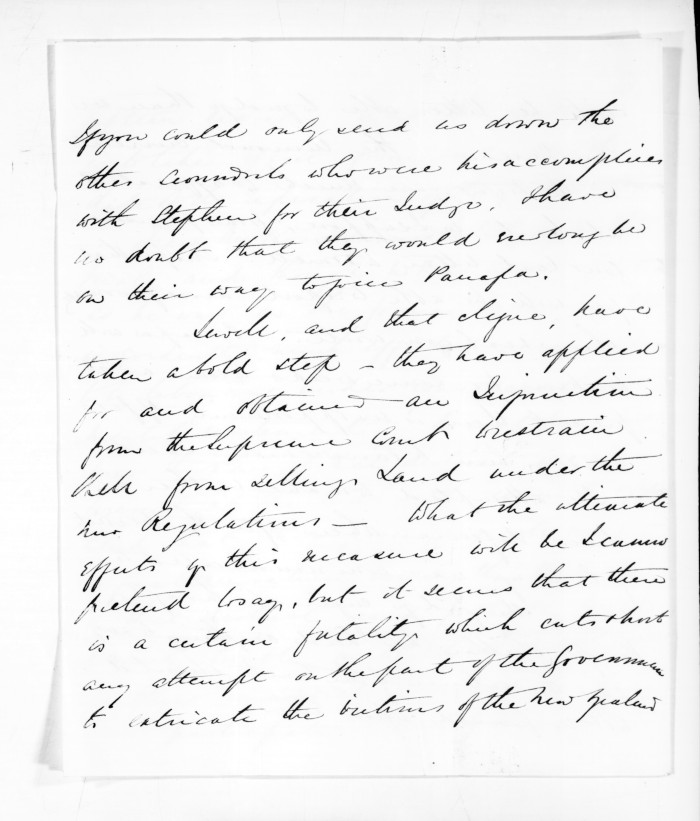 If you could only send us down the
other scoundrels who were his accomplices
with Stephen for their Judge, I have
no doubt that they would ere long be
on their way to join Panapa.
Sewell, and that clique, have
taken a bold step – they have applied
for and obtained an Injunction
from the Supreme Court to restrain
Kelh from selling Land under the
new Regulations – What the ultimate
effects of this measure will be I cannot
pretend to say, but it seems that there
is a certain fatality which cuts short
any attempt on the part of the Government
to extricate the victims of the New Zealand